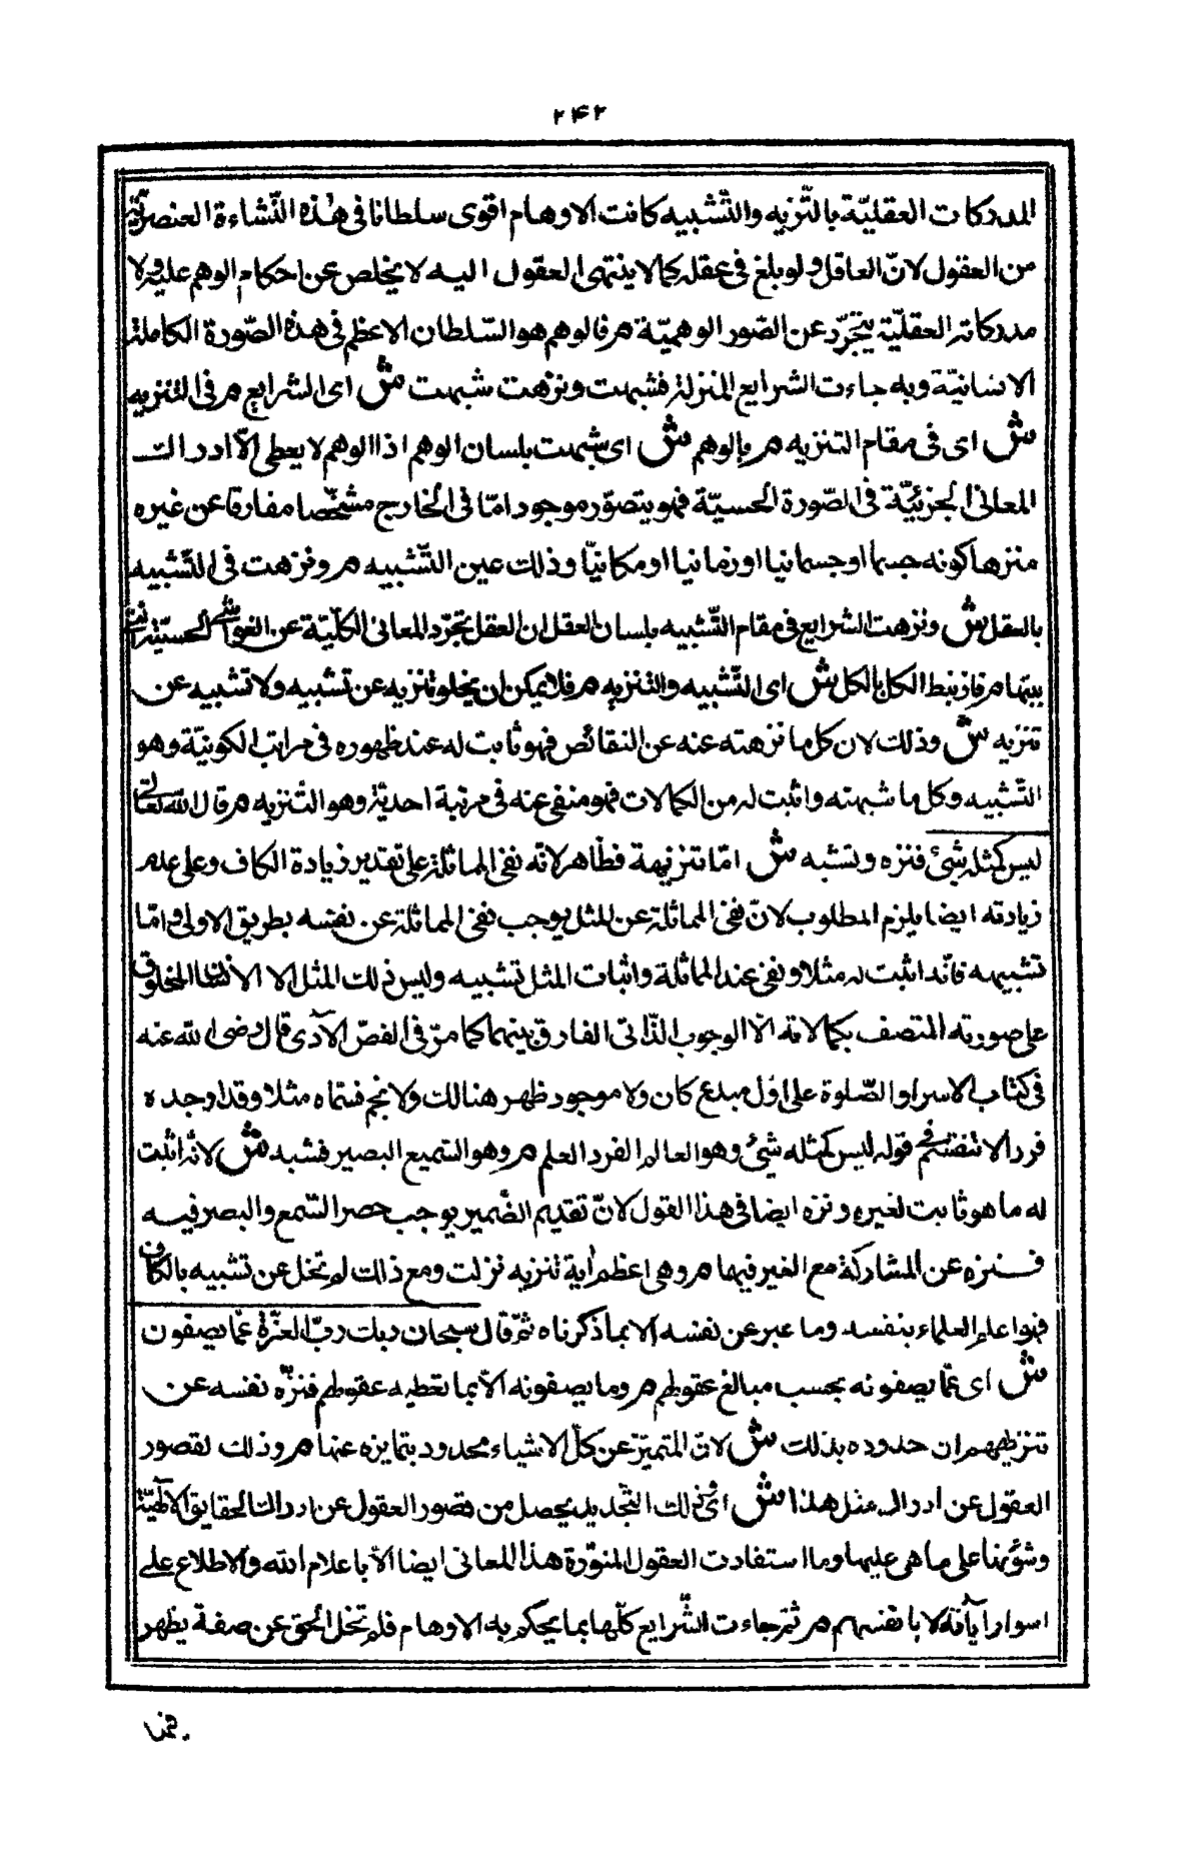 ۲۴۲
المدركات العقليّة بالتّنزيه والتّشبيه كانت الاوهام اقوى سلطانا فى هذه النّشاءة العنصريّة
من العقول لانّ العاقل ولو بلغ فى عقله كما لا ينتهى العقول اليه لا يخلص عن احكام الوهم عليه ولا
مدركاته العقليّة يتجرّد عن الصّور الوهميّة م فالوهم هو السّلطان الاعظم فى هذه الصّورة الكاملة
الانسانيّة وبه جاءت الشرايع المنزلة فشبهت ونزهت شبهت ش اى الشرايع م فى التنزيه
ش اى فى مقام التنزيه م بالوهم ش اى شبهت بلسان الوهم اذا الوهم لا يعطى الّا ادراك
المعانى الجزئيّة فى الصّورة الحسيّة فهو يتصوّر موجود امّا فى الخارج مشخّصا مفارقا عن غيره
منزها كونه جسما او جسمانيا او زمانيا او مكانيّا وذلك عين التّشبيه م ونزهت فى التّشبيه
بالعقل ش ونزهت الشرايع فى مقام التّشبيه بلسان العقل ان العقل يجرّد المعانى الكلّيّة عن الغواشى الحسيّة
بينها م فارتبط الكل بالكل ش اى التّشبيه والتنزيه م فلا يمكن ان يخلو تنزيه عن تشبيه ولا تشبيه عن
تنزيه ش وذلك لان كل ما نزهته عنه عن النقائص فهو ثابت له عند ظهوره فى مراتب الكونيّة وهو
التّشبيه وكل ما شبهته واثبت له من الكمالات فهو منفى عنه فى مرتبة احديّة وهو التّنزيه م قال الله تعالى
ليس كمثله شئ فنزه وتشبه ش امّا تنزيهة فظّاهر لانّه نفى المماثلة على تقدير زيادة الكاف وعلى عدم
زيادته ايضا يلزم المطلوب لانّ نفى المماثلة عن المثل يوجب نفى المماثلة عن نفسه بطريق الاولى وامّا
تشبيهه فانّه اثبت له مثلا ونفى عنه المماثلة واثبات المثل تشبيه وليس ذلك المثل الا الانسان المخلوق
على صورته المتصف بكمالاته الّا الوجوب الذّاتى الفارق بينهما كما مرّ فى الفصّ الآدمى قال رضى الله عنه
فى كتاب الاسرا والصّلوة على اوّل مبدع كان ولا موجود ظهر هنالك ولا نجم فسمّاه مثلا وقد اوجده
فردا لا ينقسم فى قوله ليس كمثله شئ وهو العالم الفرد العلم م وهو السّميع البصير فشبه ش لانّه اثبت
له ما هو ثابت لغيره ونزه ايضا فى هذا القول لانّ تقديم الضّمير يوجب حصر السّمع والبصر فيه
فنزه عن المشاركة مع الغير فيها م وهى اعظم اية تنزيه نزلت ومع ذلك لم تخل عن تشبيه بالكاف
فهو اعلم العلماء بنفسه وما عبر عن نفسه الا بما ذكرناه ثمّ قال سبحان ربك ربّ العزّة عمّا يصفون
ش اى عمّا يصفونه بحسب مبالغ عقولهم م وما يصفونه الّا بما تعطيه عقولهم فنزّه نفسه عن
تنزيههم ان حدوده بذلك ش لانّ المتميّز عن كلّ الاشياء محدود بتمايزه عنها م وذلك لقصور
العقول عن ادراك مثل هذا ش اى ذلك التّحديد يحصل من قصور العقول عن ادراك الحقايق الالهيّة
وشؤنها على ما هى عليها وما استفادت العقول المنوّرة هذا المعانى ايضا الّا باعلام الله والاطلاع على
اسرار آياته لا بانفسهم م ثمّ جاءت الشّرايع كلّها بما يحكم به الاوهام فلم تخل الحق عن صفة يظهر